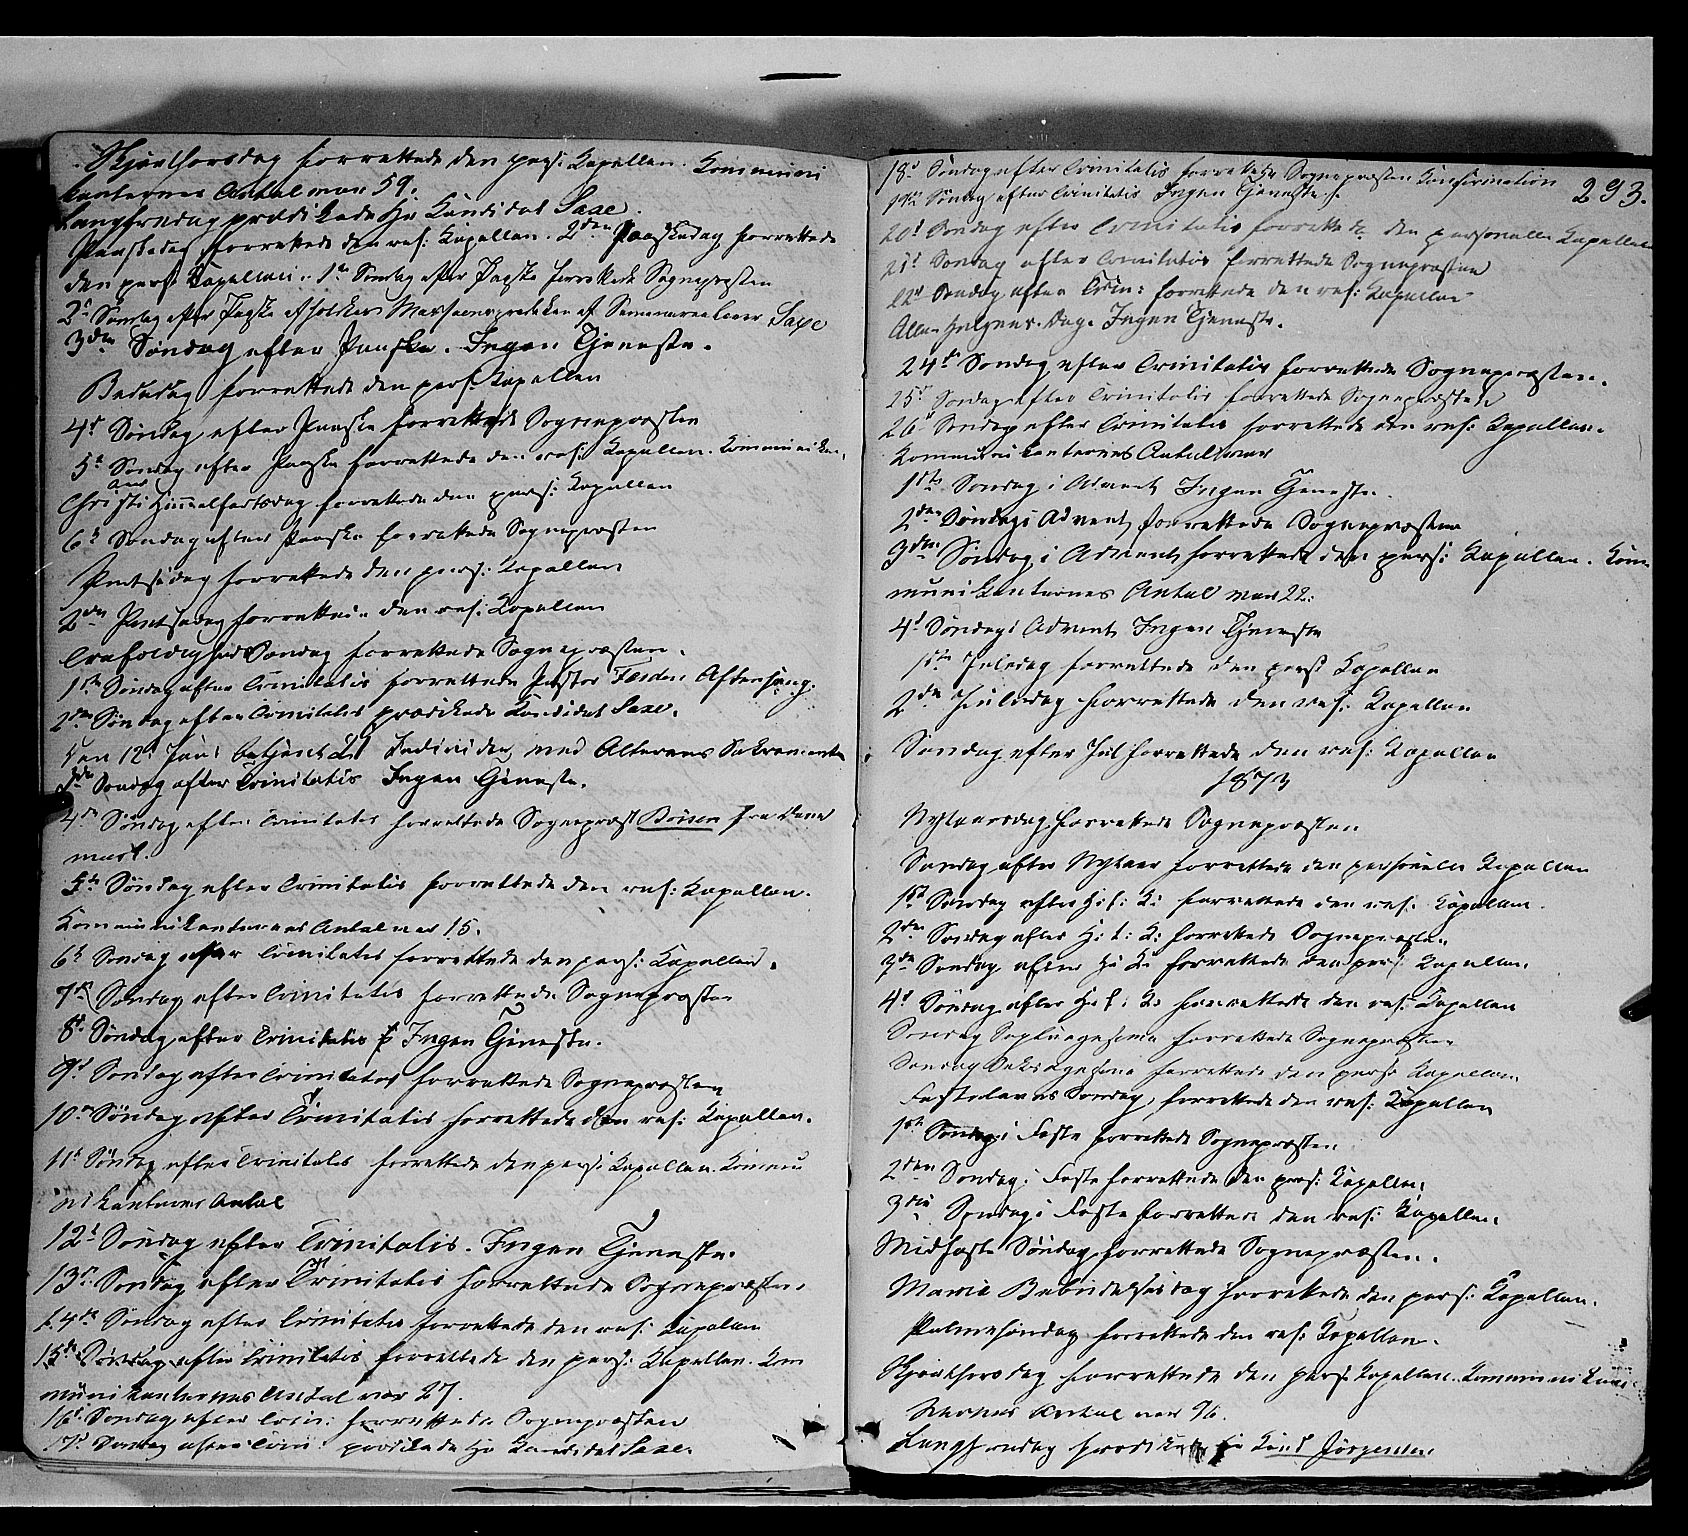 Skjærthorsdag forrettede den pers: Kapellan. Kommuni
kanternes Antal var 59.
Langfredag prædikede Hr Kandidat Saxe.
Paaskedag forrettede den res: Kapellan. 2den Paaskedag forrettede
den pers: Kapellan. 1ste Søndag efter Paaske forrettede Sognepræsten
2d Søndag efter Paaske af Seminarielærer Saxe
3die Søndag efter Paaske. Ingen Tjeneste.
Bededag forrettede den pers: Kapellan
4d Søndag efter Paaske forrettede Sognepræsten
5te Søndag efter Paaske forrettede den res: Kapellan. Kommunikan.
Christi Himmelfartsdag forrettede den pers: Kapellan
6te Søndag efter Paaske forrettede Sognepræsten
Pintsedag forrettede den pers: Kapellan
2den Pintsedag forrettede den res: Kapellan
Trefoldigheds Søndag forrettede Sognepræsten.
1ste Søndag efter Trinitatis forrettede Pastor Aftensang.
2den Søndag efter Trinitatis prædikede Kandidat Saxe.
Den 12t Juni betjent 21 Individer med Alterens Sakramente
3die Søndag efter Trinitatis Ingen Tjeneste.
4de Søndag efter Trinitatis forrettede Sognepræst Boisen fra Dane
mark.
5te Søndag efter Trinitatis forrettede den res: Kapellan.
Kommunikanternes Antal var 15.
6te Søndag efter Trinitatis forrettede den pers: Kapellan.
7de Søndag efter Trinitatis forrettede Sognepræsten
8de Søndag efter Trinitatis Ingen Tjeneste.
9d Søndag efter Trinitatis forrettede Sognepræsten
10de Søndag efter Trinitatis forrettede den res: Kapellan.
11te Søndag efter Trinitatis forrettede den pers: Kapellan. Kommu
nikanternes Antal
12t Søndag efter Trinitatis. Ingen Tjeneste.
13de Søndag efter Trinitatis forrettede Sognepræsten.
14de Søndag efter Trinitatis forrettede den res: Kapellan
15de Søndag efter Trinitatis forrettede den pers: Kapellan. Kom
munikanternes Antal var 27.
16d Søndag efter Trin: forrettede Sognepræsten
17d Søndag efter Trin: prædikede Hr Kandidat Saxe.
293.
18d Søndag efter Trinitatis forrettede Sognepræsten Konfirmation
19de Søndag efter Trinitatis Ingen Tjeneste.
20d Søndag efter Trinitatis forrettede den personelle Kapellan
21d Søndag efter Trinitatis forrettede Sognepræsten
22d Søndag efter Trin: forrettede den res: Kapellan
Alle Helgens-Dag. Ingen Tjeneste.
24d Søndag efter Trinitatis forrettede Sognepræsten.
25d Søndag efter Trinitatis forrettede Sognepræsten
26d Søndag efter Trinitatis forrettede den res: Kapellan.
Kommunikanternes Antal var
1ste Søndag i Advent Ingen Tjeneste.
2den Søndag i Advent forrettede Sognepræsten
3die Søndag i Advent forrettede den pers: Kapellan. Kom
munikanternes Antal var 22.
4d Søndag i Advent Ingen Tjeneste
1ste Juledag forrettede den pers: Kapellan
2den Juledag forrettede den res: Kapellan
Søndag efter Jul forrettede den res: Kapellan
1873
Nytaarsdag forrettede Sognepræsten
Søndag efter Nytaar forrettede den personelle Kapellan
1ste Søndag efter H: 3: K: forrettede den res: Kapellan.
2den Søndag efter H: 3: K: forrettede Sognepræsten
3die Søndag efter H: K: forrettede den pers: Kapellan.
4d Søndag efter H: 3: K: forrettede den res: Kapellan
Søndag Septuagesima forrettede Sognepræsten
Søndag Seksagesima forrettede den pers: Kapellan.
Fastelavns Søndag forrettede den res: Kapellan
1ste Søndag i Faste forrettede Sognepræsten
2den Søndag i Faste forrettede den pers: Kapellan.
3die Søndag i Faste forrettede den res: Kapellan.
Midfaste Søndag forrettede Sognepræsten.
Mariæ Bebudelsesdag forrettede den pers: Kapellan.
Palmesøndag forrettede den res: Kapellan.
Skjærthorsdag forrettede den pers: Kapellan. Kommunikan
ternes Antal var 96.
Langfredag prædikede Hr Kand Jørgensen.